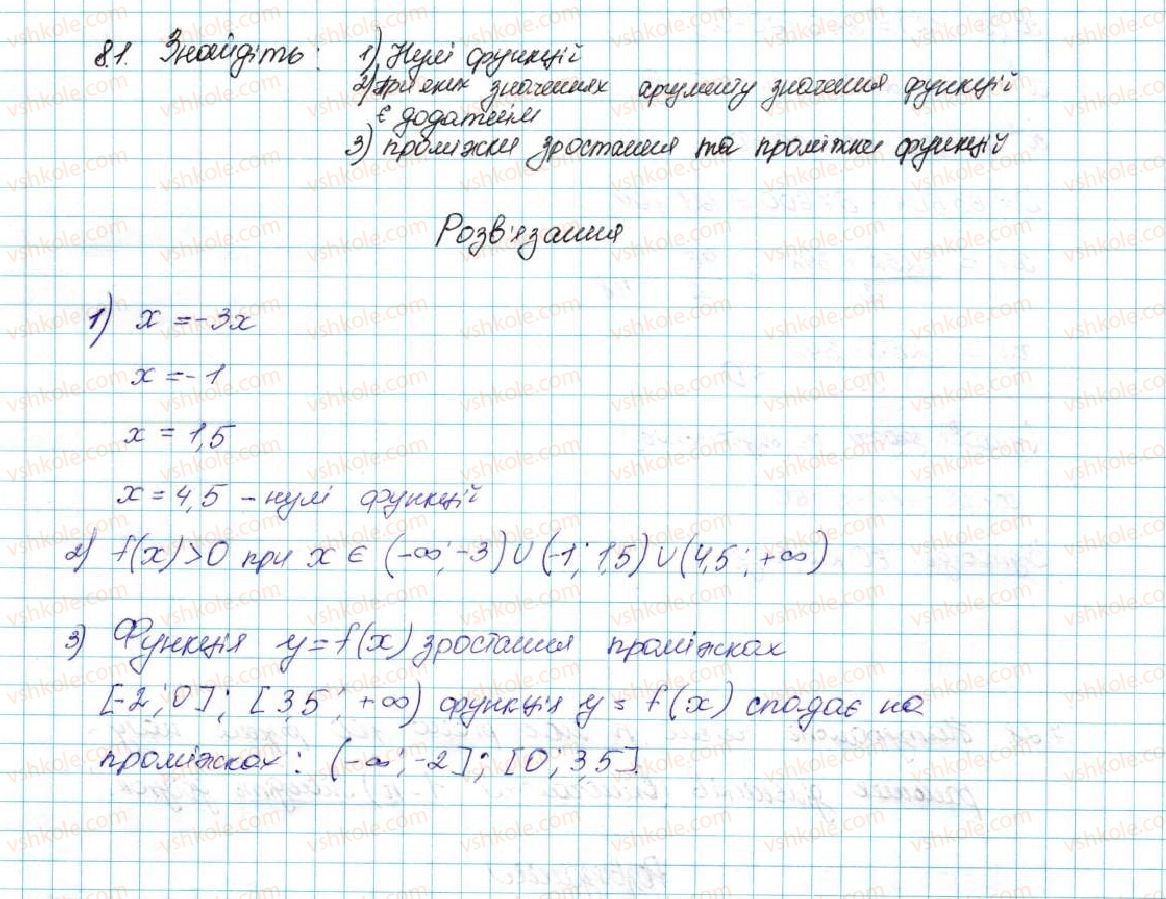 8.1. Знайдіть: 1) Нулі функцій
2) при яких значеннях аргументу значення функцій
є додатнім
3) проміжки зростання та проміжки функцій
Розв'язання
1) x = -3x
x = -1
x = 1,5
x = 4,5 - нулі функцій
2) f(x)>0 при x є (-∞; -3) ∪ (-1; 1,5) ∪ (4,5; +∞)
3) Функція y = f(x) зростання проміжках
[-2; 0]; [3,5; +∞) функція y = f(x) спадає на
проміжках: (-∞; -2]; [0; 3,5].